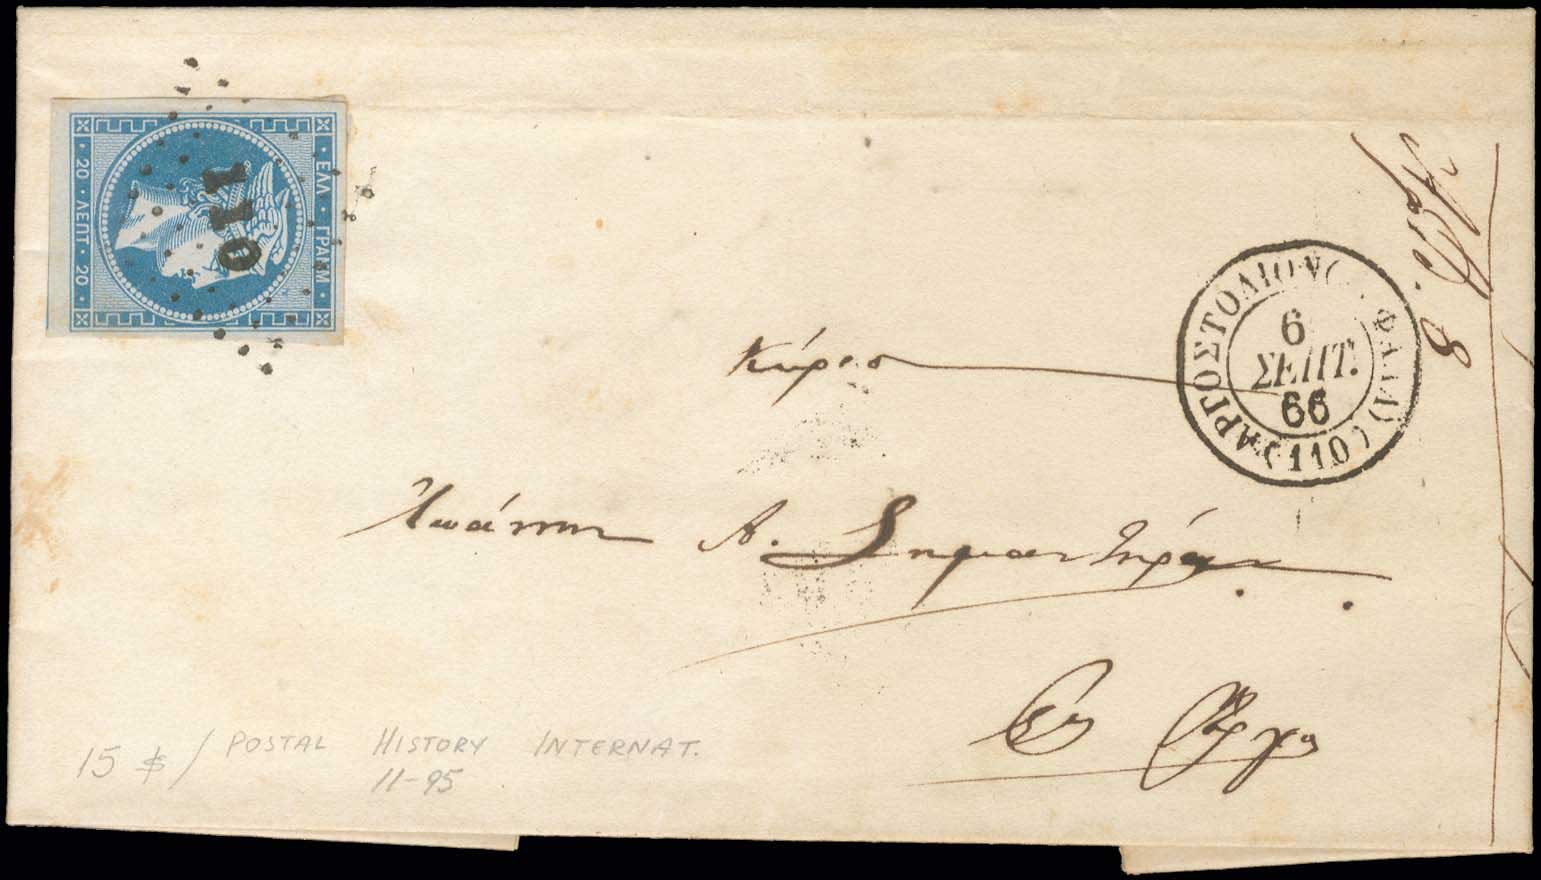 ΕΛΛ · ΓΡΑΜΜ
20 · ΛΕΠΤ · 20
110
ΑΡΓΟΣΤΟΛΙΟΝ (ΦΑΛΛ) (110)
6
ΣΕΠΤ.
66
8
Κύριο
Ἰωάννην Α.
Ἐν Ἄργο
15 $ / POSTAL HISTORY INTERNAT.
11-95